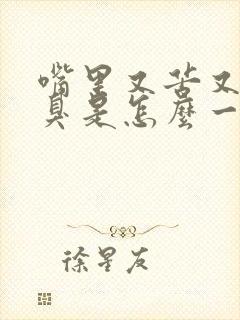 嘴里又苦又
臭是怎麼一
徐星友